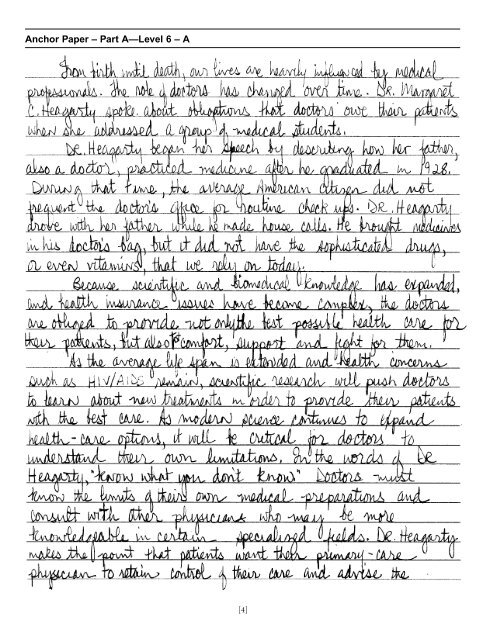 Anchor Paper – Part A—Level 6 – A
From birth until death, our lives are heavily influenced by medical
professionals. The role of doctors has changed over time. Dr. Margaret
C. Heagarty spoke about obligations that doctors owe their patients
when she addressed a group of medical students.
Dr. Heagarty began her speech by describing how her father,
also a doctor, practiced medicine after he graduated in 1928.
During that time, the average American citizen did not
frequent the doctor's office for routine check ups. Dr. Heagarty
drove with her father while he made house calls. He brought medicines
in his doctor's bag, but it did not have the sophisticated drugs,
or even vitamins, that we rely on today.
Because scientific and biomedical knowledge has expanded,
and health insurance issues have become complex, the doctors
are obliged to provide not only the best possible health care for
their patients, but also to comfort, support and fight for them.
As the average life span is extended and health concerns
such as HIV/AIDS remain, scientific research will push doctors
to learn about new treatments in order to provide their patients
with the best care. As modern science continues to expand
health-care options, it will be critical for doctors to
understand their own limitations. In the words of Dr.
Heagarty, "know what you don't know" Doctors must
know the limits of their own medical preparations and
consult with other physicians who may be more
knowledgeable in certain specialized fields. Dr. Heagarty
makes the point that patients want their primary-care
physician to retain control of their care and advise the
[4]